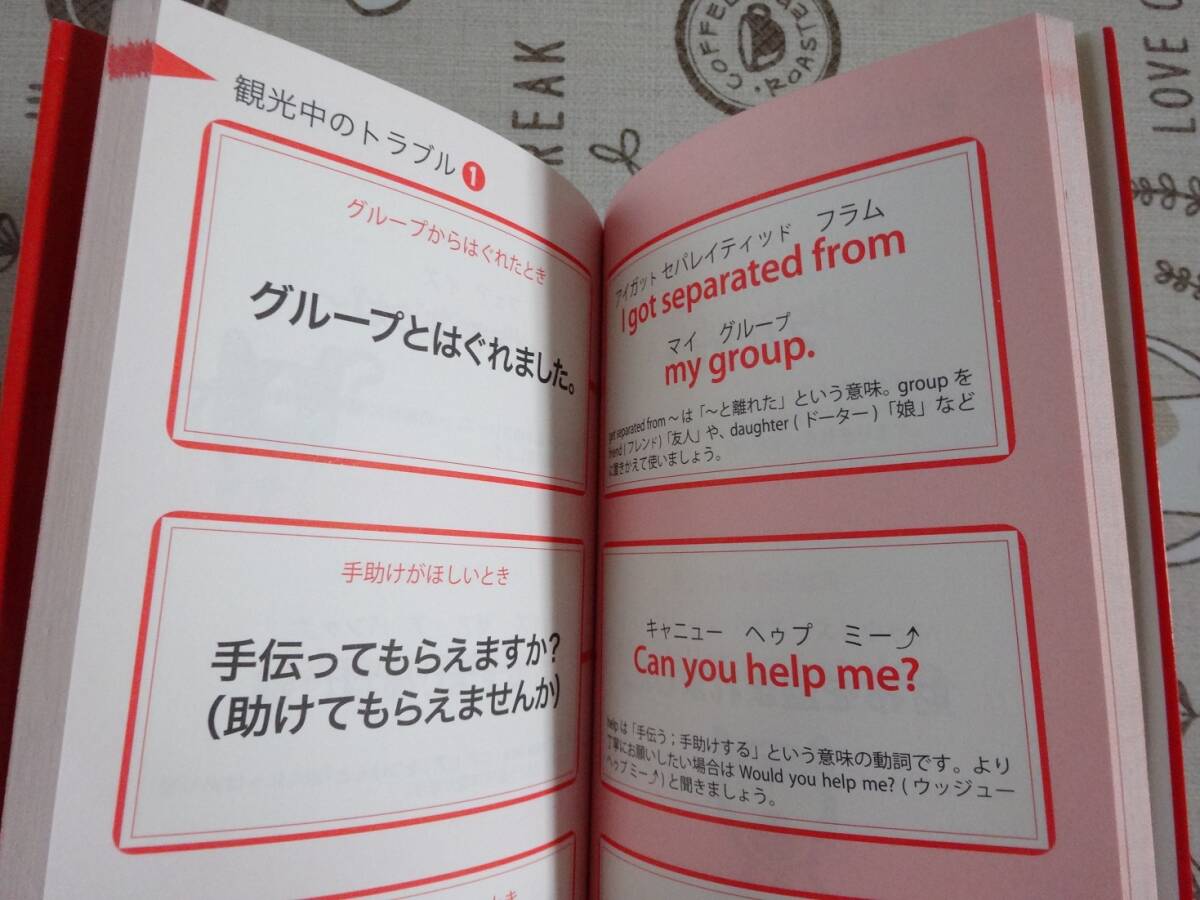 観光中のトラブル1
グループからはぐれたとき
グループとはぐれました。
手助けがほしいとき
手伝ってもらえますか?
(助けてもらえませんか)
アイガット セパレイティッド フラム
I got separated from
マイ グループ
my group.
get separated from ~は「~と離れた」という意味。groupを
friend(フレンド)「友人」や、daughter(ドーター)「娘」など
に置きかえて使いましょう。
キャニュー ヘゥプ ミー⤴
Can you help me?
helpは「手伝う;手助けする」という意味の動詞です。より
丁寧にお願いしたい場合はWould you help me?(ウッジュー
ヘゥプミー⤴)と聞きましょう。
COFFEE
ROASTED
BREAK
LOVE